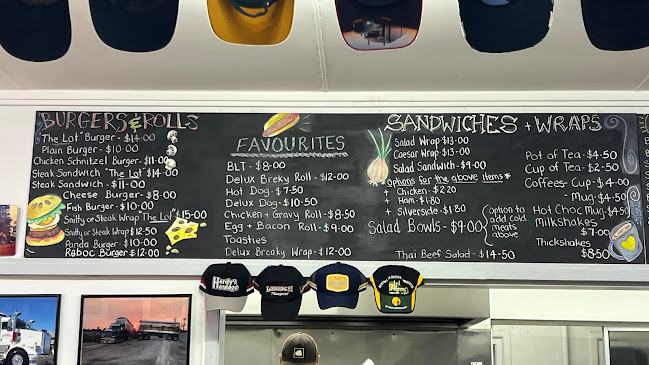 BURGERS & ROLLS
"The Lot" Burger - $14.00
Plain Burger - $10.00
Chicken Schnitzel Burger - $11.00
Steak Sandwich "The Lot" $14.00
Steak Sandwich - $11.00
Cheese Burger - $8.00
Fish Burger - $10.00
Snitty or Steak Wrap "The Lot" $15.00
Snitty or Steak Wrap $12.50
Panda Burger - $10.00
Raboc Burger - $12.00
FAVOURITES
BLT - $8.00
Delux Breky Roll - $12.00
Hot Dog - $7.50
Delux Dog - $10.50
Chicken + Gravy Roll - $8.50
Egg + Bacon Roll - $9.00
Toasties
Delux Breaky Wrap - $12.00
SANDWICHES + WRAPS
Salad Wrap $13.00
Caesar Wrap $13.00
Salad Sandwich - $9.00
*Options for the above items*
+ Chicken - $2.20
+ Ham - $1.80
+ Silverside - $1.80
Salad Bowls - $9.00 (option to add cold meats above
Thai Beef Salad - $14.50
Pot of Tea - $4.50
Cup of Tea - $2.50
Coffees - Cup - $4.00
- Mug - $4.50
Hot Choc Mug - $4.50
Milkshakes
$7.00
Thickshakes
$8.50